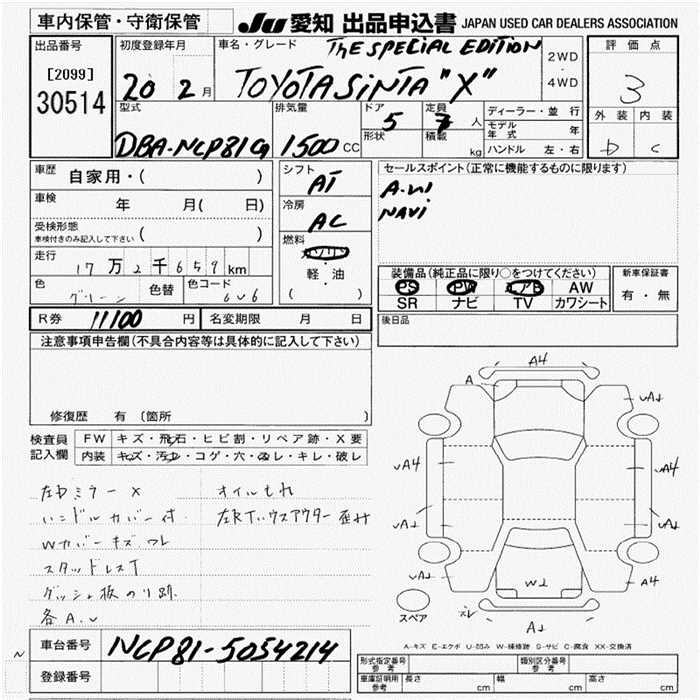 車内保管・守衛保管
JU 愛知 出品申込書 JAPAN USED CAR DEALERS ASSOCIATION
出品番号 [2099] 30514
初度登録年月 20 2月
車名・グレード THE SPECIAL EDITION
TOYOTA SiNTA "X"
2WD ・ 4WD
評価点 3
外装 内装
b c
型式 DBA-NCP81G
排気量 1500 CC
ドア 5
形状
定員 7 人
積載 kg
ディーラー・並行
モデル年式 年
ハンドル 左・右
車歴 自家用・( )
車検 年 月( 日)
受検形態
車検付きのみ記入して下さい ( )
走行 17万2千659km
色 グリーン 色替 色コード 6V6
シフト AT
冷房 AC
燃料 ガソリン
・
軽・油
( )
セールスポイント(正常に機能するものに限ります)
A.W
NAVi
装備品(純正品に限り○をつけてください)
PS PW エアB AW
SR ナビ TV カワシート
新車保証書
有・無
R券 11100 円 名変期限 月 日
後日品
注意事項申告欄(不具合内容等は具体的に記入して下さい)
修復歴 有 (箇所 )
検査員記入欄
FW キズ・飛石・ヒビ割・リペア跡・X要
内装 キズ・汚レ・コゲ・穴・スレ・キレ・破レ
左ドミラーX オイルもれ
ハンドルカバー付
Wカバーキズ ワレ
スタッドレスT
ダッシュ板のり跡
各A.U
A4
A
UA1
UA4
UA4
UA1
UA1
UA1
W1
A4
スレ
A1
スペア
A-キズ E-エクボ U-凹み W-補修跡 S-サビ C-腐食 XX-交換済
車台番号 NCP81-5054214
登録番号
形式指定番号 参考
類別区分番号 参考
車庫証明用参考 長さ cm 幅 cm 高さ cm